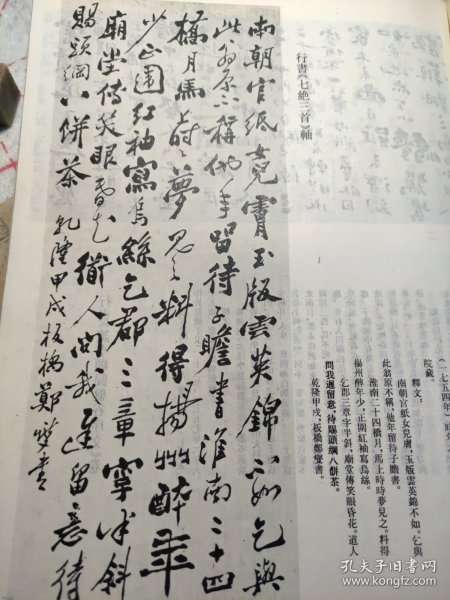 行書《七絶三首》軸
南朝官紙女兒膚玉版雲英錦不如乞與
此翁原不稱他年留待子瞻書淮南二十四
橋月馬上時時夢見之料得揚州醉年
少正圍紅袖寫烏絲乞郡三章字半斜
廟堂傳笑眼昏花道人問我遲留意待
賜頭綱八餅茶 乾隆甲戌板橋鄭燮書
(一七五四年)
院藏。
釋文:
南朝官紙女兒膚,玉版雲英錦不如。乞與
此翁原不稱,他年留待子瞻書。
淮南二十四橋月,馬上時時夢見之。料得
揚州醉年少,正圍紅袖寫烏絲。
乞郡三章字半斜,廟堂傳笑眼昏花。道人
問我遲留意,待賜頭綱八餅茶。
乾隆甲戌,板橋鄭燮書。
孔夫子旧书网